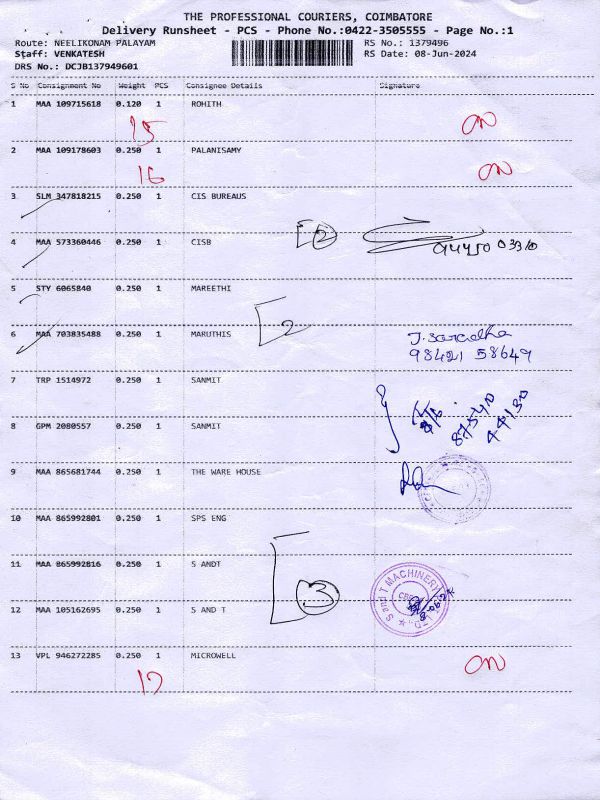 THE PROFESSIONAL COURIERS, COIMBATORE
Delivery Runsheet - PCS - Phone No.:0422-3505555 - Page No.:1
Route: NEELIKONAM PALAYAM
RS No.: 1379496
Staff: VENKATESH
RS Date: 08-Jun-2024
DRS No.: DCJB137949601
S No Consignment No Weight PCS Consignee Details Signature
1 MAA 109715618 0.120 1 ROHITH
15
2 MAA 109178603 0.250 1 PALANISAMY
16
3 SLM 347818215 0.250 1 CIS BUREAUS
2
4 MAA 573360446 0.250 1 CISB
5 STY 6065840 0.250 1 MAREETHI
2
6 MAA 703835488 0.250 1 MARUTHIS
98421 58649
7 TRP 1514972 0.250 1 SANMIT
87540
44130
8 GPM 2080557 0.250 1 SANMIT
9 MAA 865681744 0.250 1 THE WARE HOUSE
10 MAA 865992801 0.250 1 SPS ENG
11 MAA 865992816 0.250 1 S ANDT
3
S and T MACHINERY
12 MAA 105162695 0.250 1 S AND T
13 VPL 946272285 0.250 1 MICROWELL
17